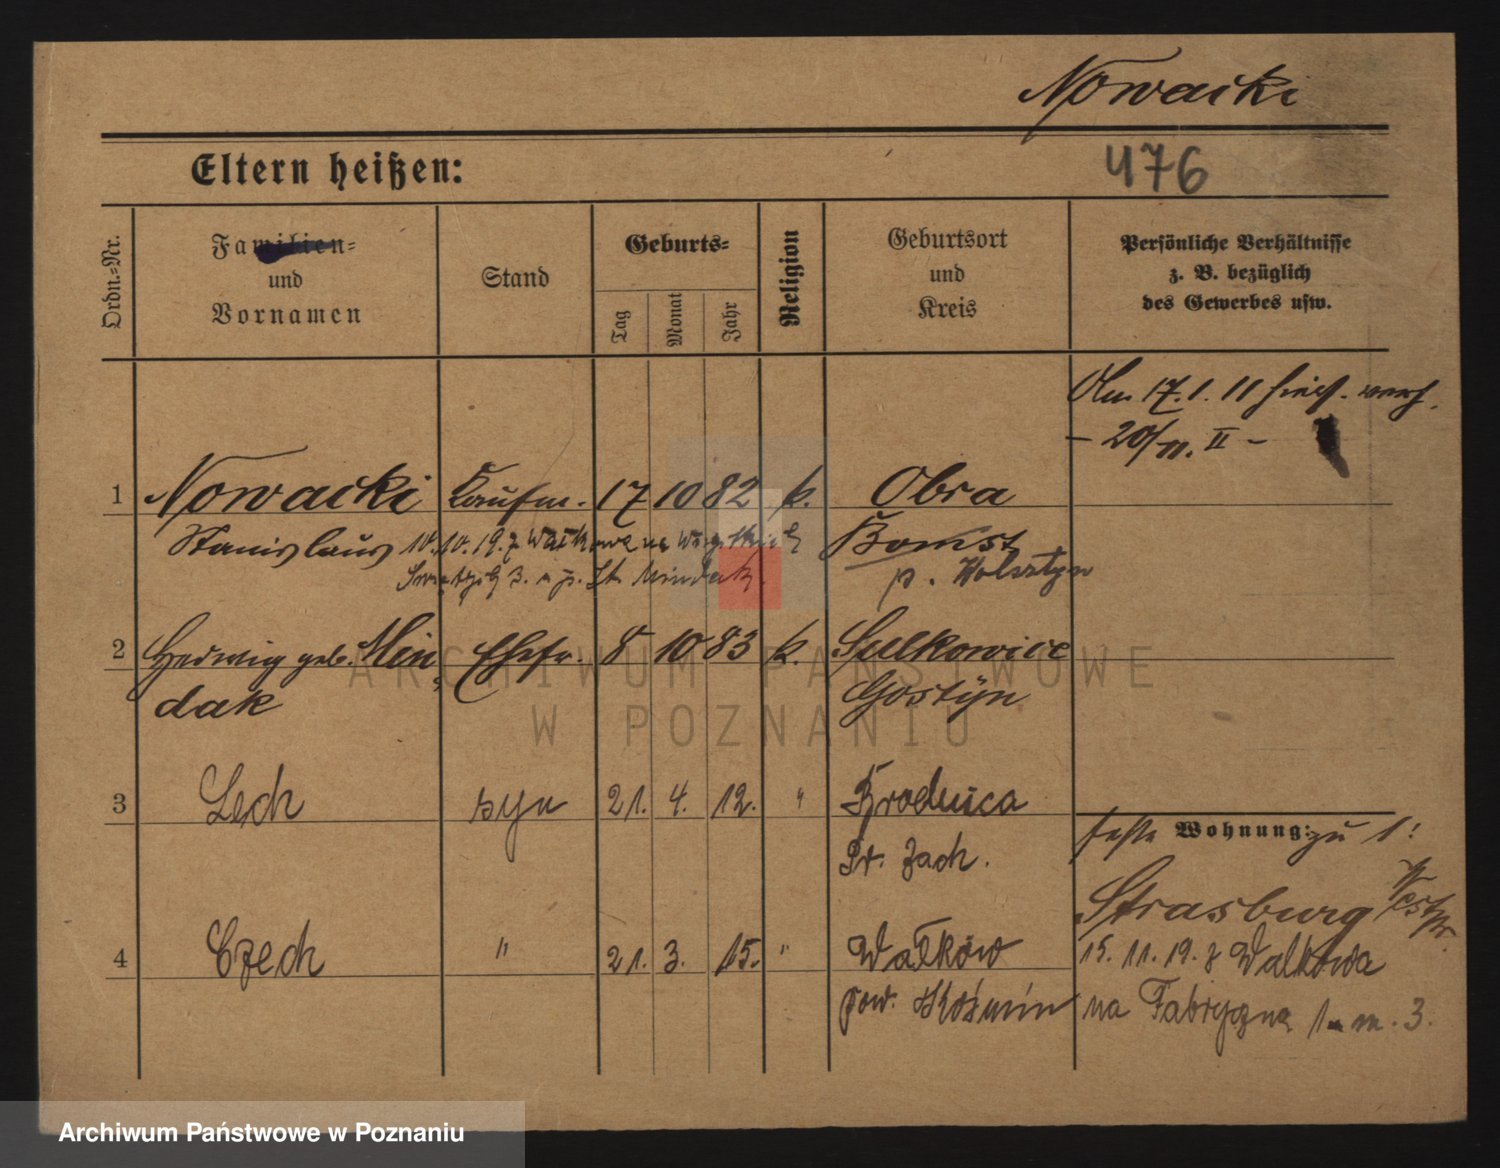 Nowacki
Eltern heißen:
476
Ordn.-Nr.
Familien-
und
Vornamen
Stand
Geburts-
Tag
Monat
Jahr
Religion
Geburtsort
und
Kreis
Persönliche Verhältnisse
z. B. bezüglich
des Gewerbes usw.
Am 17.1.11 hies. verh.
- 20/11. II -
1 Nowacki Kaufm. 17 10 82 k. Obra
Stanislaus 10.10.19. z Wałkowa na
Bomst
p. Wolsztyn
2 Hedwig geb. Min Ehefr. 8 10 83 k. Sulkowice
dak Gostyn
3 Lech syn 21. 4. 12. " Brodnica
Pr. Zach.
feste Wohnung: zu 1:
Strasburg Westpr.
4 Czech " 21. 3. 15. " Wałków
pow. Koźmin
15.11.19. z Walkowa
na Fabryczną 1 m. 3.
ARCHIWUM PAŃSTWOWE
W POZNANIU
Archiwum Państwowe w Poznaniu